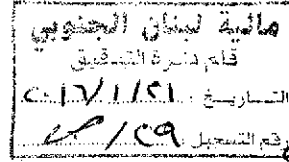 مالية لبنان الجنوبي
قلم دائرة التدقيق
التاريخ : ٢٠١٧/١/٣١
رقم التسجيل : ٢٩/ص